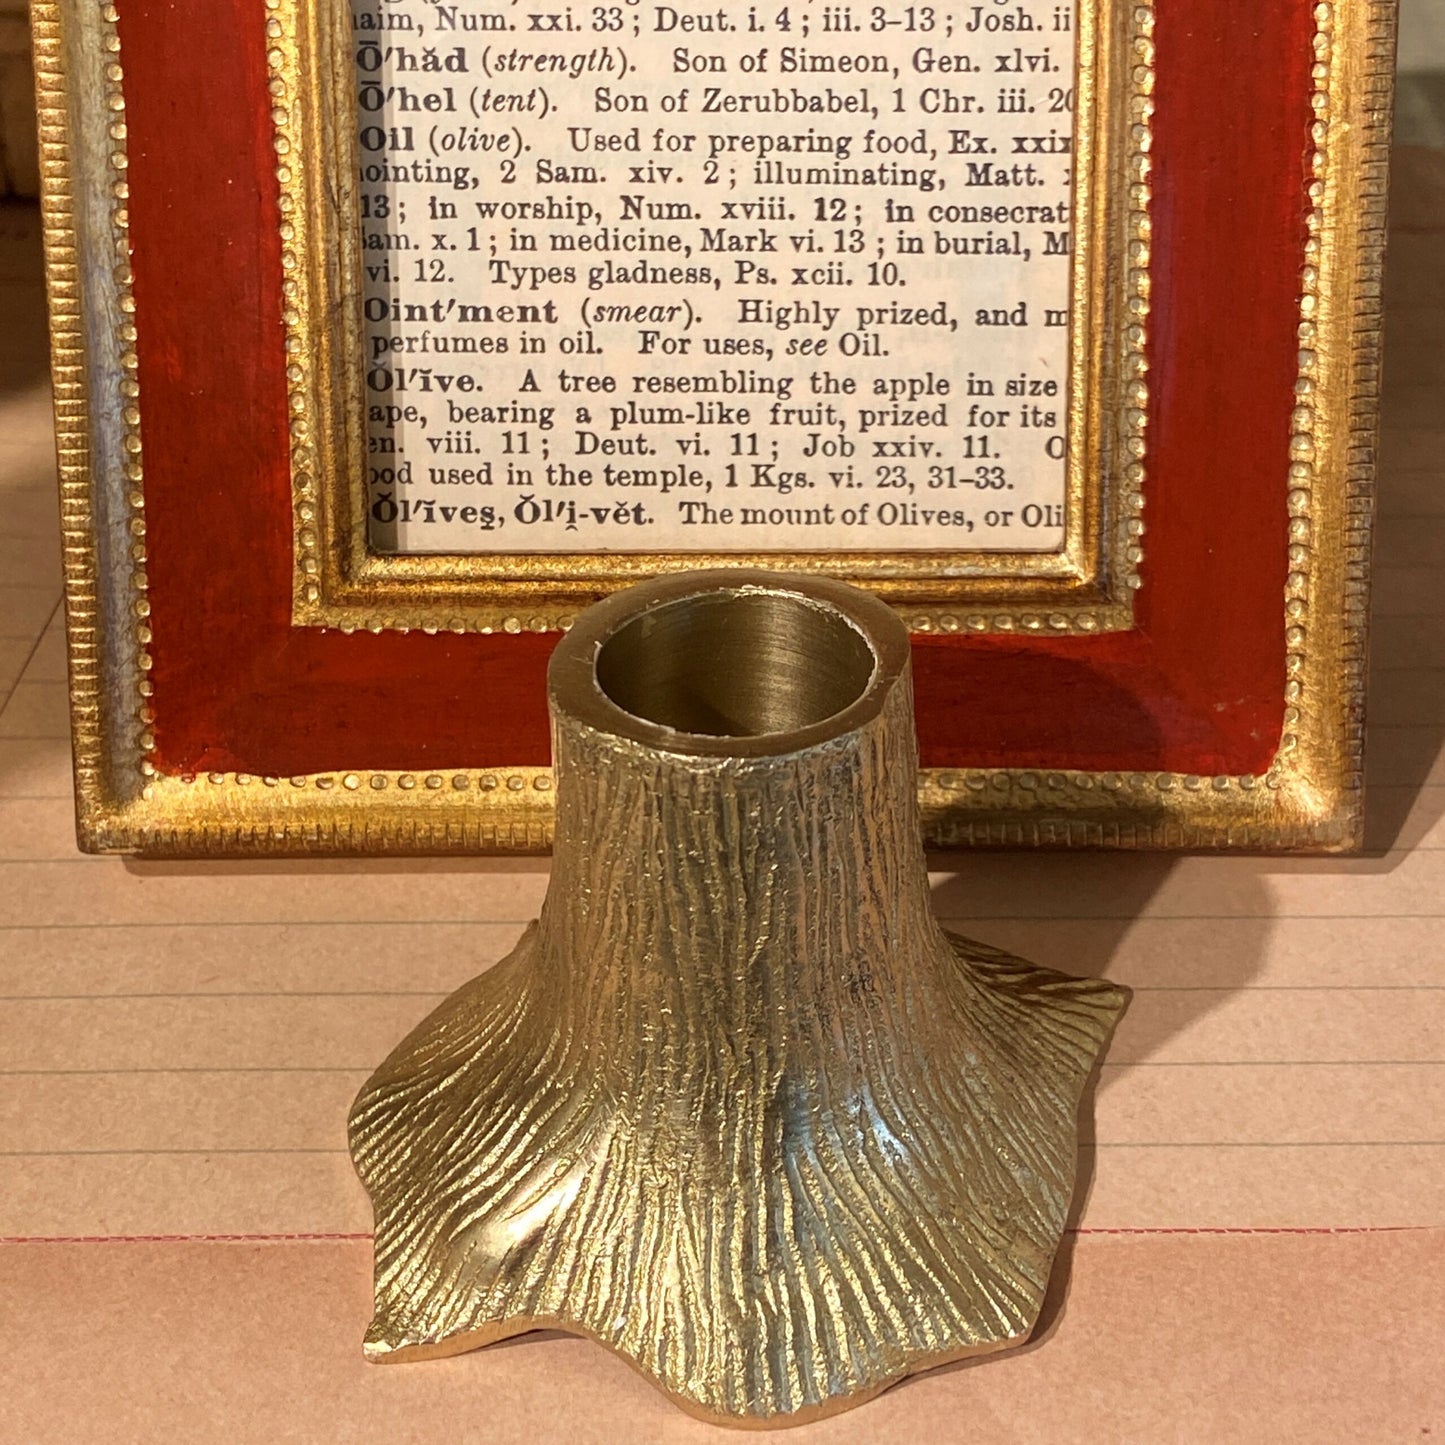 aim, Num. xxi. 33; Deut. i. 4; iii. 3–13; Josh. ii
Ō′hăd (strength). Son of Simeon, Gen. xlvi.
Ō′hel (tent). Son of Zerubbabel, 1 Chr. iii. 20
Oil (olive). Used for preparing food, Ex. xxix
ointing, 2 Sam. xiv. 2; illuminating, Matt.
13; in worship, Num. xviii. 12; in consecrat
am. x. 1; in medicine, Mark vi. 13; in burial, M
vi. 12. Types gladness, Ps. xcii. 10.
Oint′ment (smear). Highly prized, and m
perfumes in oil. For uses, see Oil.
Ŏl′ĭve. A tree resembling the apple in size
ape, bearing a plum-like fruit, prized for its
en. viii. 11; Deut. vi. 11; Job xxiv. 11. O
ood used in the temple, 1 Kgs. vi. 23, 31–33.
Ŏl′ĭveş, Ŏl′i̭-vĕt. The mount of Olives, or Oli